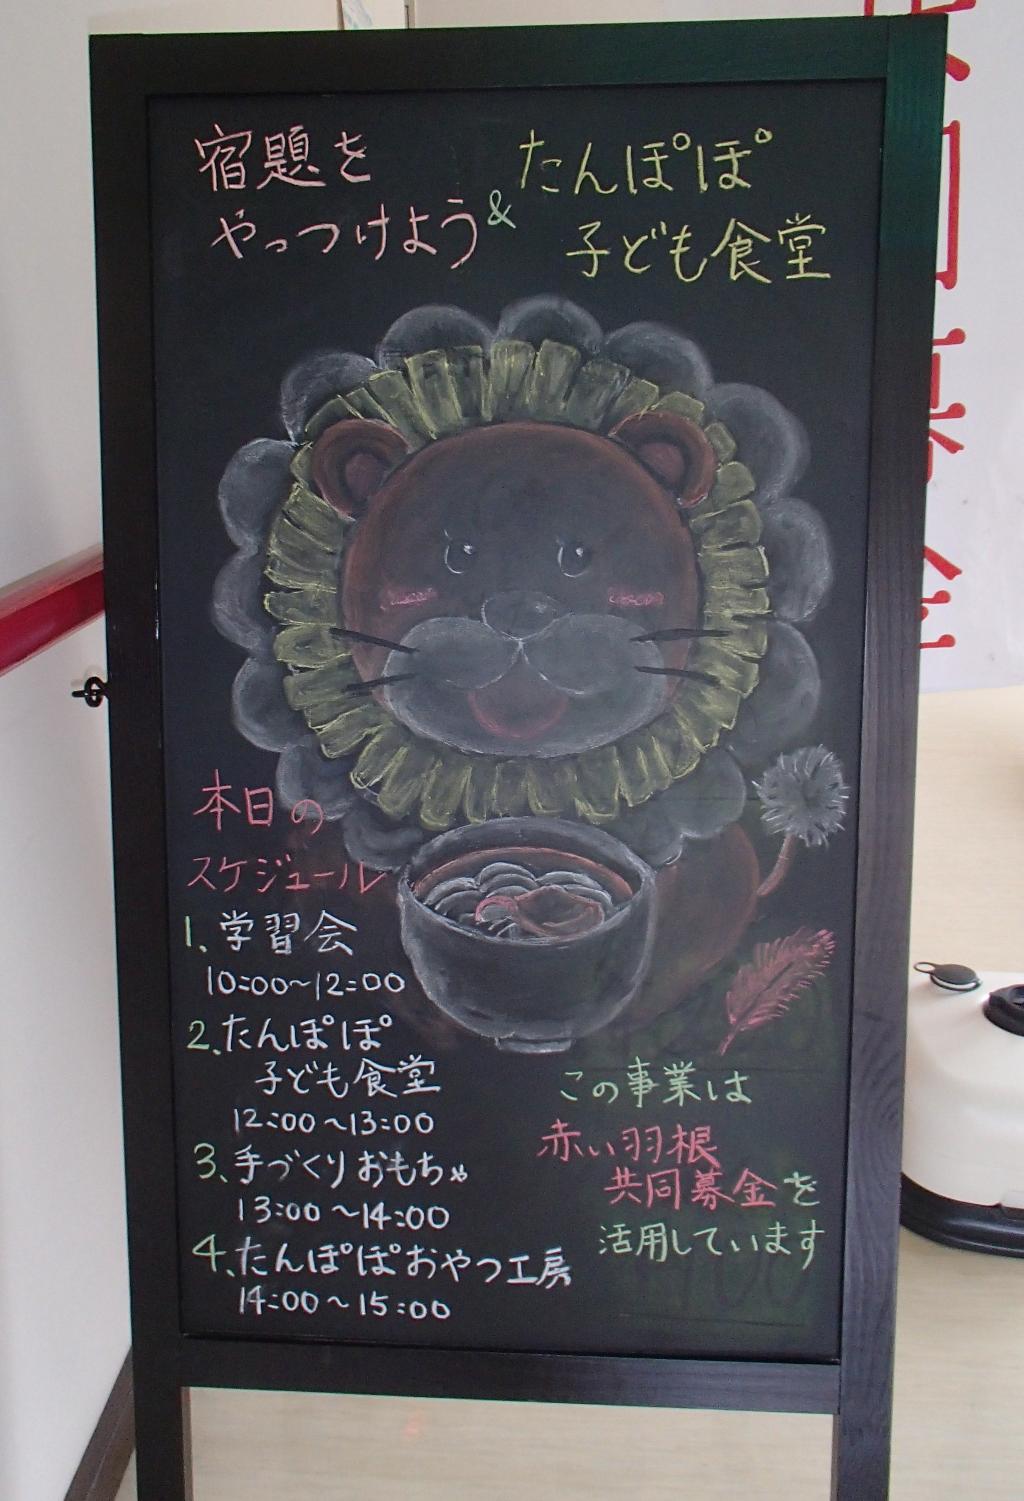 宿題を
やっつけよう
&
たんぽぽ
子ども食堂
本日の
スケジュール
1、学習会
10:00～12:00
2、たんぽぽ
子ども食堂
12:00～13:00
3、手づくりおもちゃ
13:00～14:00
4、たんぽぽおやつ工房
14:00～15:00
この事業は
赤い羽根
共同募金を
活用しています